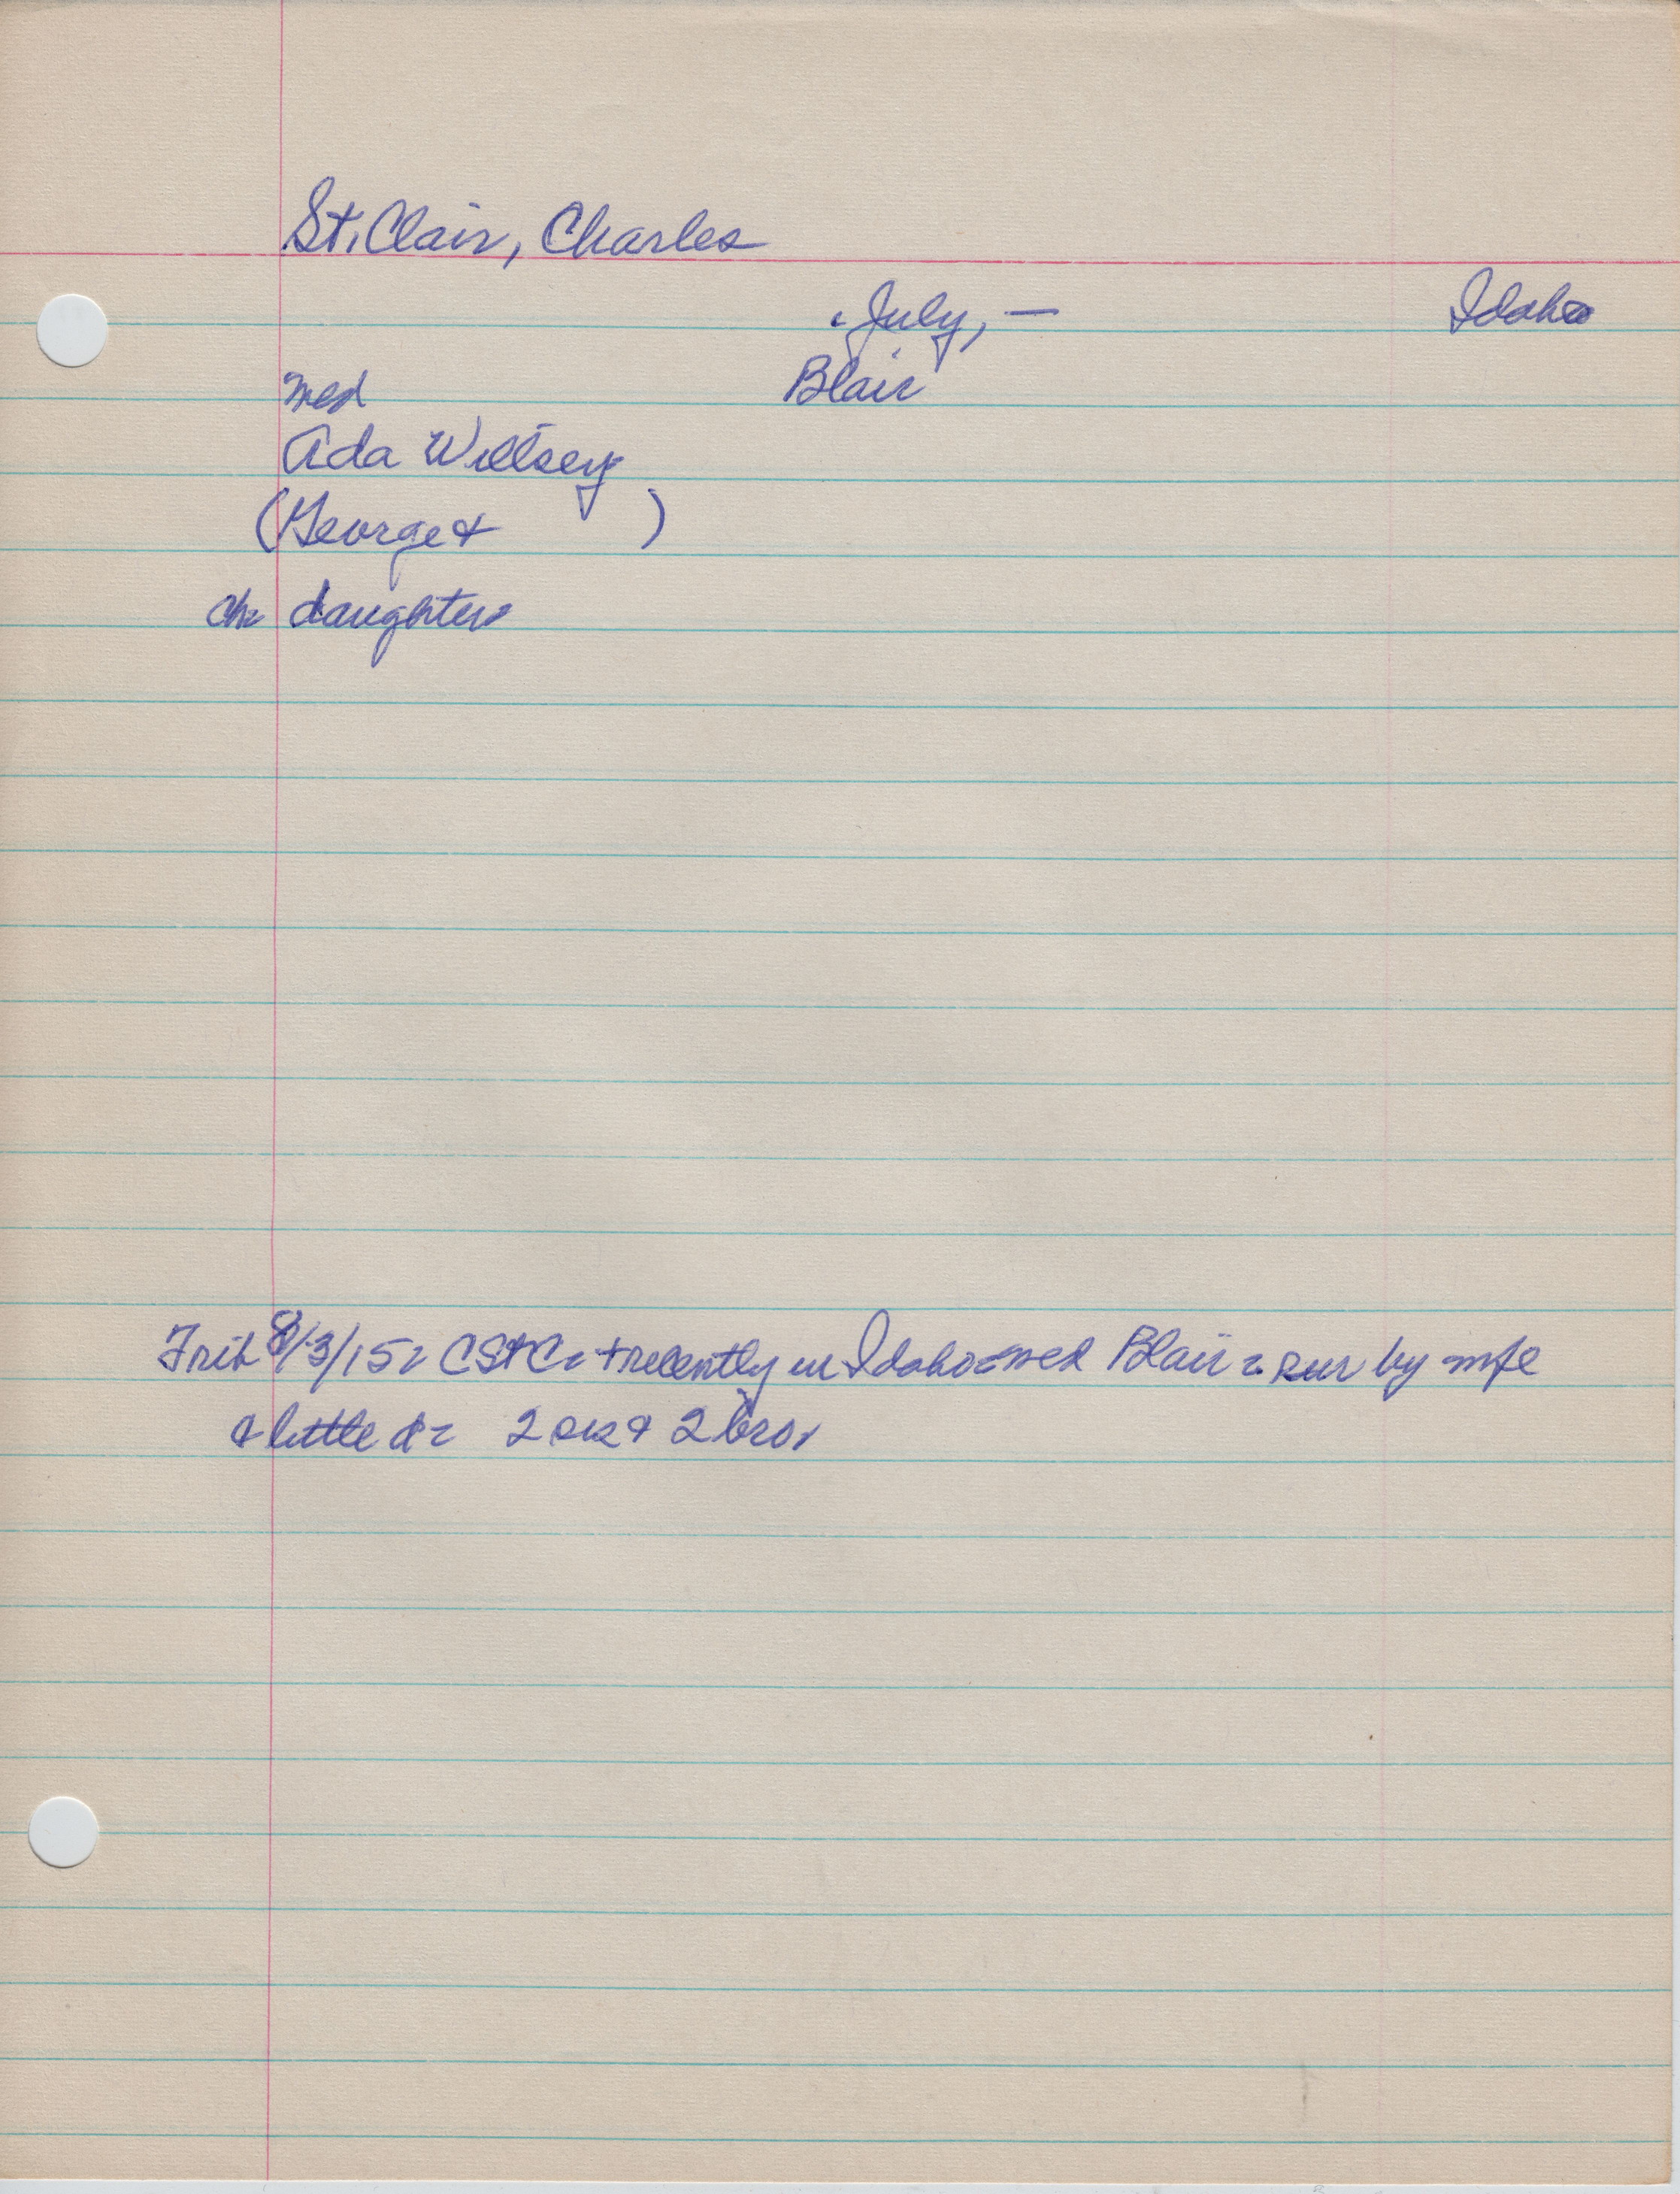 St. Clair, Charles
July, — Idaho
med Blair
Ada Willsey
(George & )
ch= daughter
Trib 8/3/15= C St C= + recently in Idaho= med Blair= sur by wife
& little d= 2 sis & 2 bro